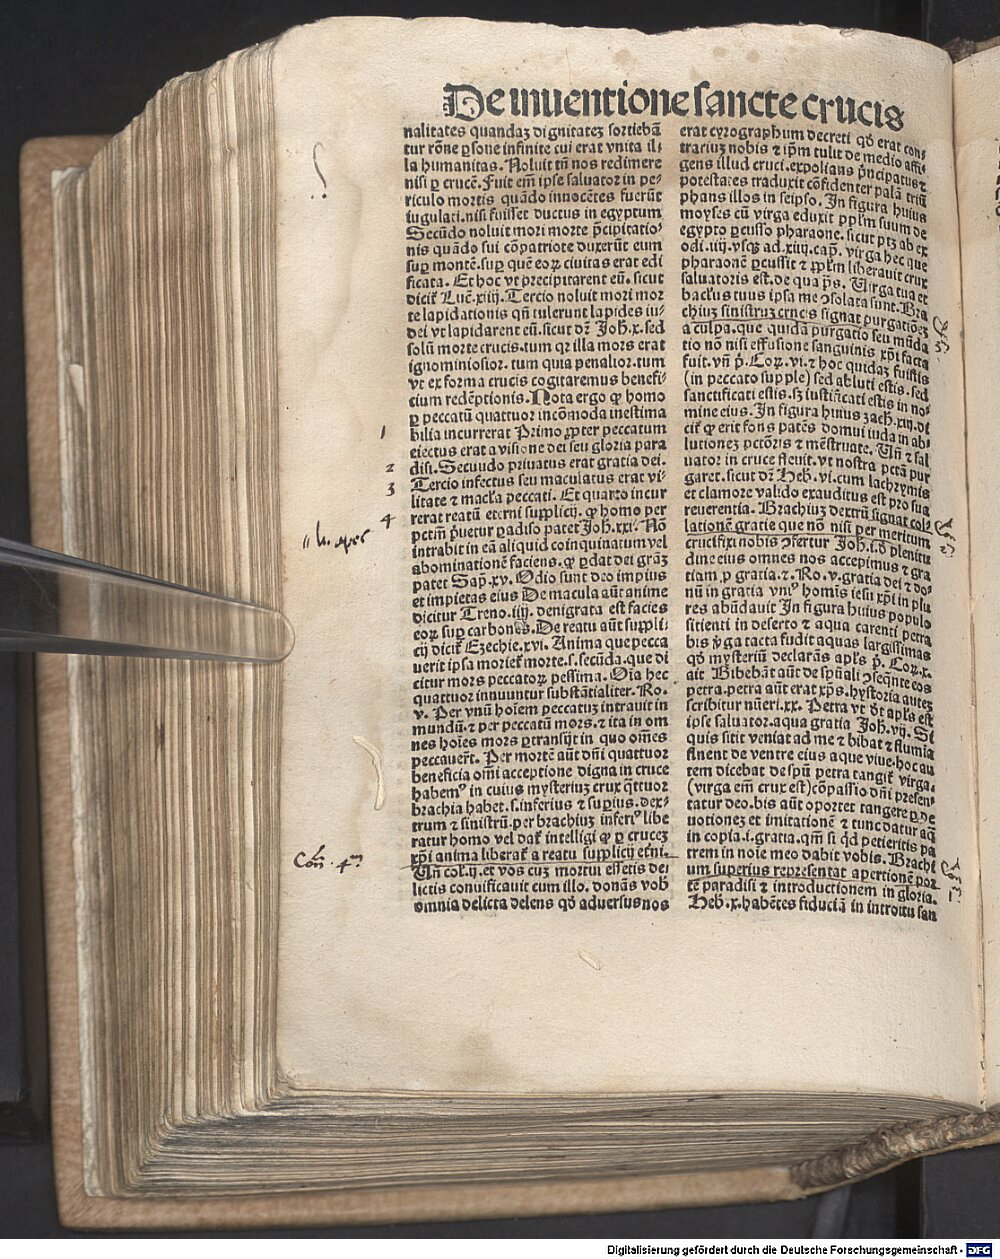 De inuentione sancte crucis
nalitates quandaʒ dignitateʒ sortiebã
tur rõne ꝑsone infinite cui erat vnita il⸗
la humanitas. Noluit tñ nos redimere
nisi ꝑ crucẽ. Fuit em̃ ipse saluator in pe⸗
riculo mortis quãdo innocẽtes fuerũt
iugulati. nisi fuisset ductus in egyptum
Secũdo noluit mori morte p̃cipitatio⸗
nis quãdo sui cõpatriote duxerũt eum
suꝑ montẽ. suꝑ quẽ eoꝝ ciuitas erat edi
ficata. Et hoc vt precipitarent eũ. sicut
dicit̃ Luč.xiiij. Tercio noluit mori mor
te lapidationis qñ tulerunt lapides iu⸗
dei vt lapidarent eũ. sicut dr̃ Joh̃.x. sed
solũ morte crucis. tum qꝛ illa mors erat
ignominiosior. tum quia penalior. tum
vt ex forma crucis cogitaremus benefi⸗
cium redẽptionis. Nota ergo ꝙ homo
ꝑ peccatũ quattuor incõmoda inestima
bilia incurrerat Primo ꝓpter peccatum
eiectus erat a visione dei seu gloria para
disi. Secuudo priuatus erat gratia dei.
Tercio infectus seu maculatus erat vi⸗
litate ⁊ macľa peccati. Et quarto incur
rerat reatũ eterni supplicij. ꝙ homo per
pctm̃ p̃uetur ꝑadiso patet Joh̃.xxi. Nõ
intrabit in eã aliquid coinquinatum vel
abominationẽ faciens. ꝙ ꝑdat dei grãʒ
patet Sap̃.xv. Odio sunt deo impius
et impietas eius De macula aũt anime
dicitur Treno.iiij. denigrata est facies
eoꝝ suꝑ carbones. De reatu aũt suppli⸗
cij dicit̃ Ezechie.xvi. Anima que pecca
uerit ipsa moriet̃ morte.s. secũda. que di
citur mors peccatoꝝ pessima. Oĩa hec
quattuor innuuntur substãtialiter. Ro.
v. Per vnũ hoĩem peccatuʒ intrauit in
mundũ. ⁊ per peccatũ mors. ⁊ ita in om
nes hoĩes mors ꝑtransijt in quo om̃es
peccauer̃t. Per mortẽ aũt dñi quattuor
beneficia om̃i acceptione digna in cruce
habemꝰ in cuius mysteriuʒ crux q̃ttuor
brachia habet. s. inferius ⁊ suꝑius. dex⸗
trum ⁊ sinistrũ. per brachiuʒ inferiꝰ libe
ratur homo vel dat̃ intelligi ꝙ ꝑ cruceʒ
xp̃i anima liberat̃ a reatu supplicij etẽni.
Vñ coł.ij. et vos cuʒ mortui essetis de⸗
lictis conuificauit cum illo. donãs vob̃
omnia delicta delens qđ aduersus nos
erat cyrographum decreti qđ erat con⸗
trariuʒ nobis ⁊ ip̃m tulit de medio affi⸗
gens illud cruci. expolians p̃ncipatus ⁊
potestates traduxit cõfidenter palã triũ
phans illos in seipso. In figura huius
moyses cũ virga eduxit pplm̃ suum de
egypto ꝑcusso pharaone. sicut ptʒ ab ex
odi.iiij. vsqꝫ ad.xiiij. cap̃. virga hec que
pharaonẽ ꝑcussit ⁊ pplm̃ liberauit crux
saluatoris est. de qua p̃s. Virga tua et
baclus tuus ipsa me ↄsolata sunt. Bra
chiuʒ sinistruʒ crucis signat purgationeʒ
a culpa. que quidã purgatio seu mũda
tio nõ nisi effusione sanguinis xp̃i facta
fuit. vñ p̃. Coꝝ.vi. ⁊ hoc quidaʒ fuistis
(in peccato supple) sed abluti estis. sed
sanctificati estis. sʒ iustificati estis in no⸗
mine eius. In figura huius zach̃.xiij. di
cit̃ ꝙ erit fons patẽs domui iuda in ab⸗
lutioneʒ pctõris ⁊ mẽstruate. Vñ ⁊ sal
uator in cruce fleuit. vt nostra pctã pur
garet. sicut dr̃ Heb̃.vi. cum lachrymis
et clamore valido exauditus est pro sua
reuerentia. Brachiuʒ dextrũ signat col⸗
lationẽ gratie que nõ nisi per meritum
crucifixi nobis ↄfertur Joh̃.i. ð plenitu
dine eius omnes nos accepimus ⁊ gra
tiam ꝓ gratia. ⁊. Ro.v. gratia dei ⁊ do⸗
nũ in gratia vniꝰ homĩs iesu xp̃i in plu
res abũdauit In figura huius populo
sitienti in deserto ⁊ aqua carenti petra
bis ṽga tacta fudit aquas largissimas
qđ mysteriũ declarãs apľs p̃. Coꝝ.x.
ait Bibebãt aũt de sp̃uali ↄseq̃nte eos
petra. petra aũt erat xp̃s. hystoria auteʒ
scribitur nũeri.xx. Petra vt ðt apľs est
ipse saluator. aqua gratia Joh̃.vij. Si
quis sitit veniat ad me ⁊ bibat ⁊ flumĩa
fluent de ventre eius aque viue. hoc au
tem dicebat de sp̃u petra tangit̃ virga.
(virga em̃ crux est) cõpassio dñi presen⸗
tatur deo. bis aũt oportet tangere ꝑ de
uotioneʒ et imitationẽ ⁊ tunc datur aq̃
in copia .i. gratia. qm̃ si qđ petieritis pa
trem in noĩe meo dabit vobis. Brachi
um superius representat apertionẽ por
te paradisi ⁊ introductionem in gloria.
Heb̃.x. habẽtes fiduciã in introitu san
1
2
3
4
Digitalisierung gefördert durch die Deutsche Forschungsgemeinschaft - DFG